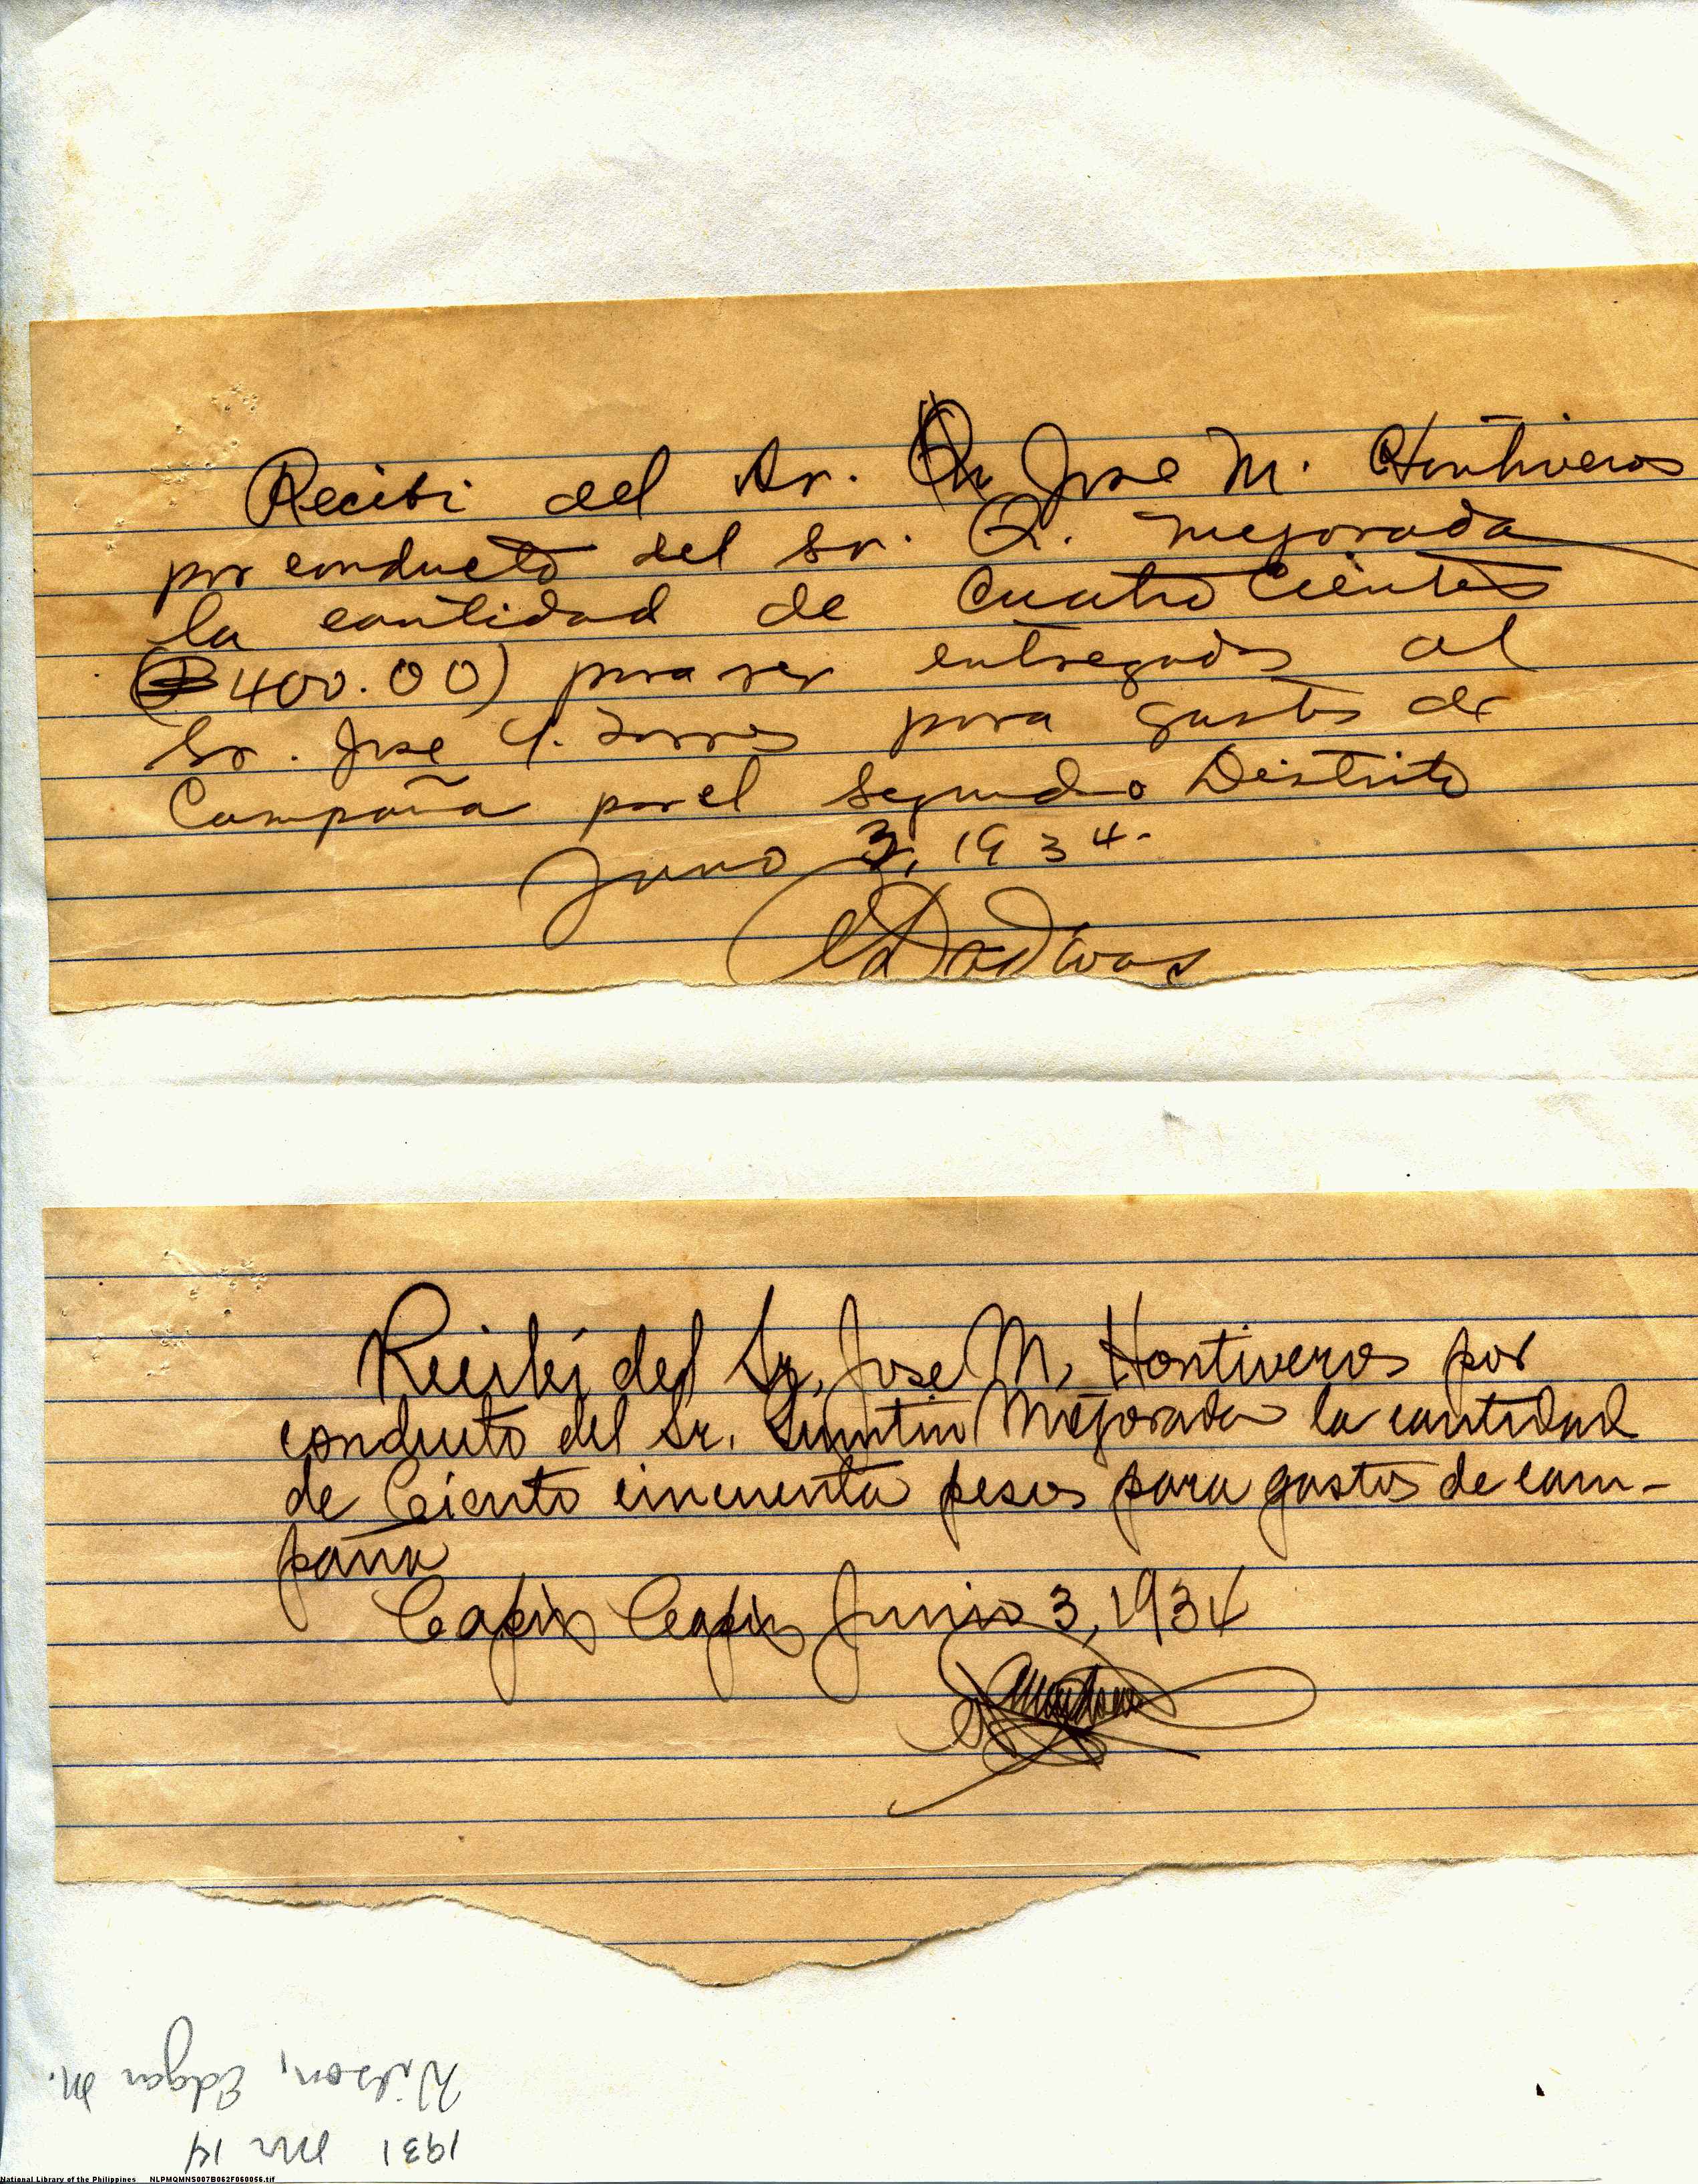 Recibi del Sr. Jose M. Hontiveros
por conducto del Sr. Q. Mejorada
la cantidad de Cuatro Cientos
(₱400.00) para ser entregados al
Sr. Jose Y. Torres para gastos de
Campaña por el Segundo Distrito
Junio 3, 1934.
Dadivas
Recibí del Sr. Jose M. Hontiveros por
conducto del Sr. Quintin Mejorada la cantidad
de Ciento cincuenta pesos para gastos de cam-
paña
Capiz Capiz Junio 3, 1934
1931 Mr 14
Wilson, Edgar M.
National Library of the Philippines NLPMQMNS007B062F060056.tif